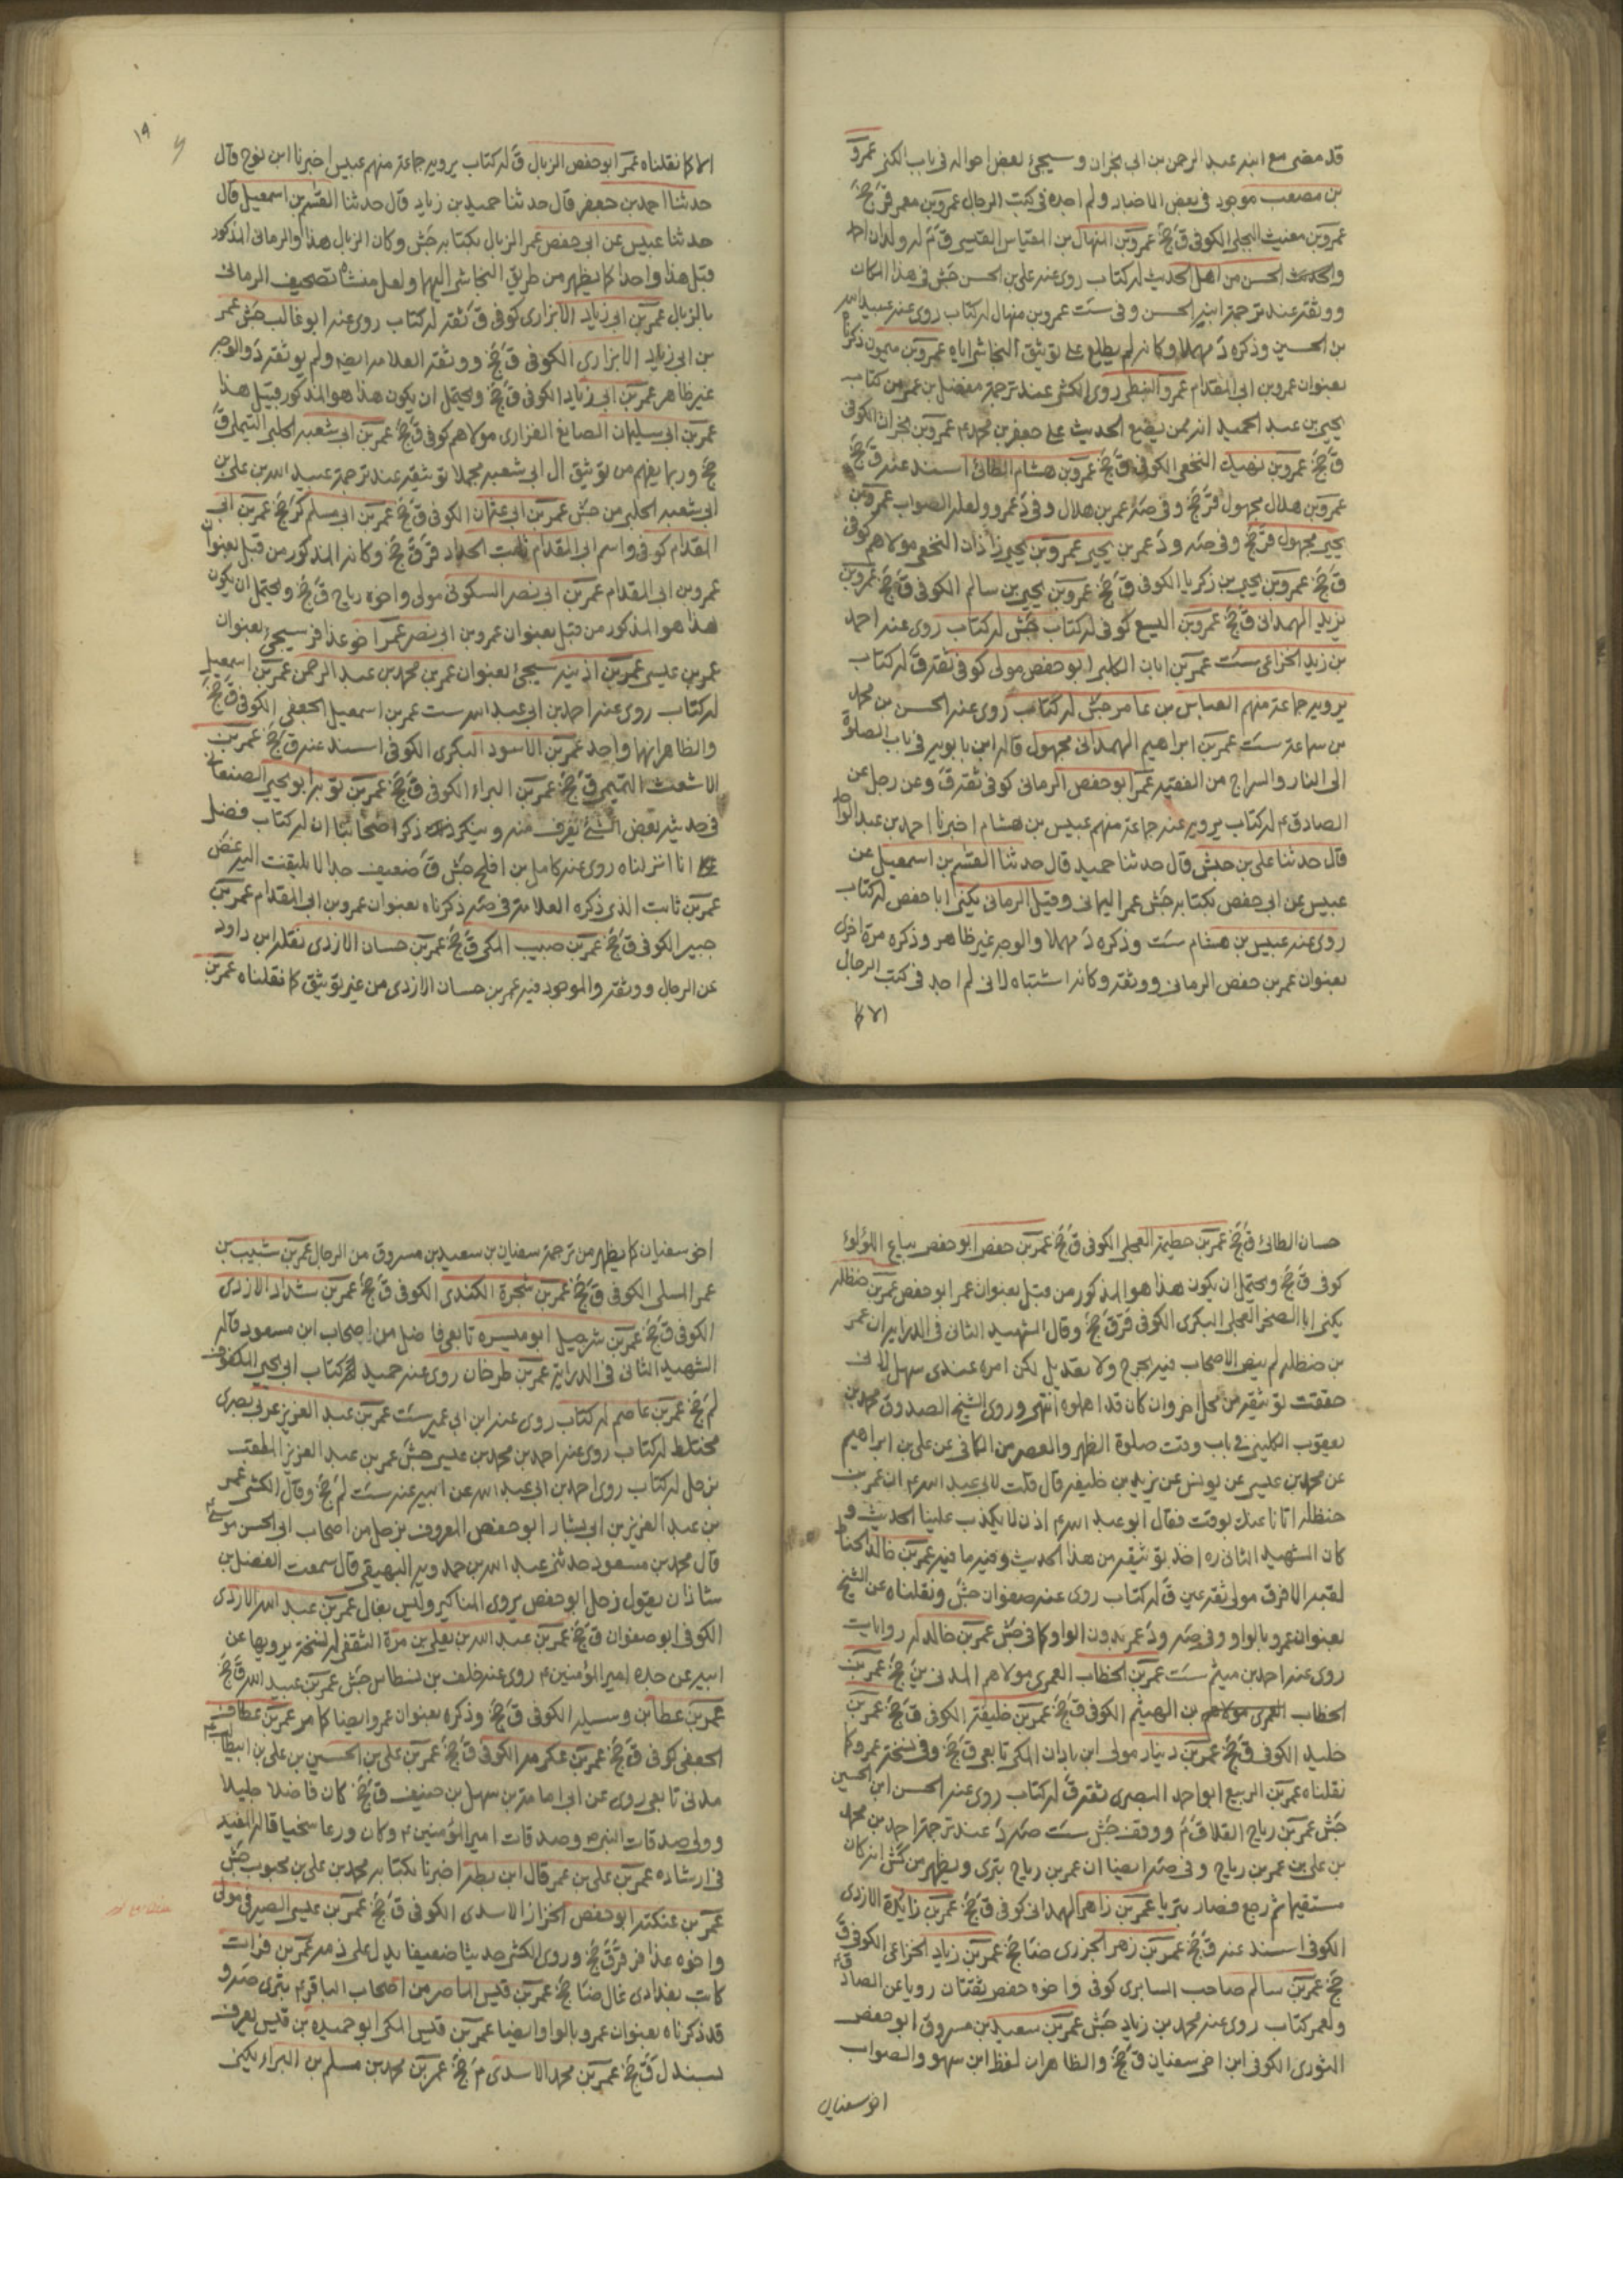 قد مضى مع ابنه عبد الرحمن بن ابى نجران وسيجئ بعض احواله فى باب الكنى عمرو
بن مصعب موجود فى بعض الاخبار ولم اجده فى كتب الرجال عمرو بن معمر ق جخ
عمرو بن مغيث البجلى الكوفى ق جخ عمرو بن المنهال بن المقياس القيسى ق له ولدان احمد
والحسن من اهل الحديث له كتاب روى عنه على بن الحسن جش فى هذا المكان
ووثقه عند ترجمة ابنه الحسن وفى ست عمرو بن منهال له كتاب روى عنه عبيد الله
بن الحسين وذكره د مهملا وكانه لم يطلع على توثيق النجاشى اياه عمرو بن ميمون ذكرناه
بعنوان عمرو بن ابى المقدام عمرو النبطى روى الكشى عند ترجمة مفضل بن عمر من كتاب
يحيى بن عبد الحميد انه ممن يضع الحديث على جعفر بن محمد ع عمرو بن نجران الكوفى
ق جخ عمرو بن نهيك النخعى الكوفى ق جخ عمرو بن هشام الطائى اسند عنه ق جخ
عمرو بن هلال مجهول قر جخ وفى صه عمر بن هلال وفى د عمرو ولعله الصواب عمرو بن
يحيى مجهول قر جخ وفى صه ود عمر بن يحيى عمرو بن يحيى زاذان النخعى مولاهم كوفى
ق جخ عمرو بن يحيى بن زكريا الكوفى ق جخ عمرو بن يحيى بن سالم الكوفى ق جخ عمرو بن
يزيد الهمدانى ق جخ عمرو بن اليسع كوفى له كتاب جش له كتاب روى عنه احمد
بن زيد الخزاعى ست عمر بن ابان الكلبى ابو حفص مولى كوفى ثقة ق له كتاب
يرويه جماعة منهم العباس بن عامر جش له كتاب روى عنه الحسن بن محمد
بن سماعة ست عمر بن ابراهيم الهمدانى مجهول قاله ابن بابويه فى باب الصلوة
الى النار والسراج من الفقيه عمر ابو حفص الرمانى كوفى ثقة ق وعن رجل عن
الصادق ع له كتاب يرويه عنه جماعة منهم عبيس بن هشام اخبرنا احمد بن عبد الواحد
قال حدثنا على بن حبش قال حدثنا حميد قال حدثنا القسم بن اسمعيل عن
عبيس عن ابى حفص بكتابه جش عمر اليمانى وقيل الرمانى يكنى ابا حفص له كتاب
روى عنه عبيس بن هشام ست وذكره د مهملا والوجه غير ظاهر وذكره مرة اخرى
بعنوان عمر بن حفص الرمانى ووثقه وكانه اشتباه لانى لم اجد فى كتب الرجال
الا كا
١٩
الا كما نقلناه عمر ابو حفص الزبال ق له كتاب يرويه جماعة منهم عبيس اخبرنا ابن نوح قال
حدثنا احمد بن جعفر قال حدثنا حميد بن زياد قال حدثنا القسم بن اسمعيل قال
حدثنا عبيس عن ابى حفص عمر الزبال بكتابه جش وكان الزبال هذا والرمانى المذكور
قبل هذا واحدا كما يظهر من طريق النجاشى اليهما ولعل منشاه تصحيف الرمانى
بالزبال عمر بن ابى زياد الابزارى كوفى ق ثقة له كتاب روى عنه ابو غالب جش عمر
بن ابى زياد الابزارى الكوفى ق جخ ووثقه العلامة ايضا ولم يوثقه د والوجه
غير ظاهر عمر بن ابى زياد الكوفى ق جخ ويحتمل ان يكون هذا هو المذكور قبيل هذا
عمر بن ابى سليمان الصايغ الفزارى مولاهم كوفى ق جخ عمر بن ابى شعبه الحلبى التيملى ق
جخ وربما يفهم من توثيق ال ابى شعبه مجملا توثيقه عند ترجمة عبيد الله بن على بن
ابى شعبه الحلبى من جش عمر بن ابى عثمان الكوفى ق جخ عمر بن ابى مسلم كر جخ عمر بن ابى
المقدام كوفى واسم ابى المقدام ثابت الحداد قر ق جخ وكانه المذكور من قبل بعنوان
عمرو بن ابى المقدام عمر بن ابى نصر السكونى مولى واخوه رباح ق جخ ويحتمل ان يكون
هذا هو المذكور من قبل بعنوان عمرو بن ابى نصر عمر اخو عذافر سيجئ بعنوان
عمر بن عيسى عمر بن اذينه سيجئ بعنوان عمر بن محمد بن عبد الرحمن عمر بن اسمعيل
له كتاب روى عنه احمد بن ابى عبد الله ست عمر بن اسمعيل الجعفى الكوفى ق جخ
والظاهر انهما واحد عمر بن الاسود البكرى الكوفى اسند عنه ق جخ عمر بن
الاشعث التميمى ق جخ عمر بن البراء الكوفى ق جخ عمر بن توبة ابو يحيى الصنعانى
فى حديثه بعض الشئ يعرف منه وينكر ذكر اصحابنا ان له كتاب فضل
انا انزلناه روى عنه كامل بن افلح جش ق ضعيف جدا لا يلتفت اليه غض
عمر بن ثابت الذى ذكره العلامة فى صه ذكرناه بعنوان عمرو بن ابى المقدام عمر بن
جبير الكوفى ق جخ عمر بن حبيب المكى ق جخ عمر بن حسان الازدى نقله ابن داود
عن الرجال ووثقه والموجود فيه عمر بن حسان الازدى من غير توثيق كما نقلناه عمر بن
حسان الطائى ق جخ عمر بن حطيم العجلى الكوفى ق جخ عمر بن حفص ابو حفص بياع اللؤلؤ
كوفى ق جخ ويحتمل ان يكون هذا هو المذكور من قبل بعنوان عمر ابو حفص عمر بن حنظله
يكنى ابا الصخر العجلى البكرى الكوفى قر ق جخ وقال الشهيد الثانى فى الدراية ان عمر
بن حنظله لم ينص الاصحاب فيه بجرح ولا تعديل لكن امره عندى سهل لانى
حققت توثيقه من محل اخر وان كان قد اهملوه انتهى وروى الشيخ الصدوق محمد بن
يعقوب الكلينى فى باب وقت صلوة الظهر والعصر من الكافى عن على بن ابراهيم
عن محمد بن عيسى عن يونس عن يزيد بن خليفه قال قلت لابى عبد الله ع ان عمر بن
حنظله اتانا عنك بوقت فقال ابو عبد الله ع اذن لا يكذب علينا الحديث و
كان الشهيد الثانى ره اخذ توثيقه من هذا الحديث وفيه ما فيه عمر بن خالد الحناط
لقبه الافرق مولى ثقة عين ق له كتاب روى عنه صفوان جش ونقلناه عن الشيخ
بعنوان عمرو بالواو وفى صه ود عمر بدون الواو كما فى جش عمر بن خالد له روايات
روى عنه احمد بن ميثم ست عمر بن الخطاب العمرى مولاهم المدنى ين جخ عمر بن
الخطاب بن الهيثم الكوفى ق جخ عمر بن خليفه الكوفى ق جخ عمر بن
خليد الكوفى ق جخ عمر بن دينار مولى ابن باذان المكى تابعى ق جخ وفى نسخة عمرو كما
نقلناه عمر بن الربيع ابو احمد البصرى ثقة ق له كتاب روى عنه الحسن ابن الحسين
جش عمر بن رياح القلا ق م ووقف جش ست صه د عند ترجمة احمد بن محمد
بن على بن عمر بن رياح وفى صه ايضا ان عمر بن رياح بترى ويظهر من كش انه كان
مستقيما ثم رجع فصار بتريا عمر بن زاهر الهمدانى كوفى ق جخ عمر بن زايدة الازدى
الكوفى اسند عنه ق جخ عمر بن زهر الجزرى ضا جخ عمر بن زياد الخزاعى الكوفى ق
جخ عمر بن سالم صاحب السابرى كوفى واخوه حفص ثقتان رويا عن الصادق ع
ولعمر كتاب روى عنه محمد بن زياد جش عمر بن سعيد بن مسروق ابو حفص
الثورى الكوفى ابن اخى سفيان ق جخ والظاهر ان لفظ ابن سهو والصواب
اخو سفيان
اخو سفيان كما يظهر من ترجمة سفيان بن سعيد بن مسروق من الرجال عمر بن شبيب بن
عمر المسلى الكوفى ق جخ عمر بن شجرة الكندى الكوفى ق جخ عمر بن شداد الازدى
الكوفى ق جخ عمر بن شرحبيل ابو ميسره تابعى فاضل من اصحاب ابن مسعود قاله
الشهيد الثانى فى الدراية عمر بن طرخان روى عنه حميد كتاب ابى يحيى المكفوف
لم جخ عمر بن عاصم له كتاب روى عنه ابن ابى عمير ست عمر بن عبد العزيز عربى بصرى
مختلط له كتاب روى عنه احمد بن محمد بن عيسى جش عمر بن عبد العزيز الملقب
بزحل له كتاب روى احمد بن ابى عبد الله عن ابيه عنه ست لم جخ وقال الكشى عمر
بن عبد العزيز بن ابى بشار ابو حفص المعروف بزحل من اصحاب ابى الحسن موسى ع
قال محمد بن مسعود حدثنى عبد الله بن حمدويه البيهقى قال سمعت الفضل بن
شاذان يقول زحل ابو حفص يروى المناكير وليس بغال عمر بن عبد الله الازدى
الكوفى ابو صفوان ق جخ عمر بن عبد الله بن يعلى بن مرة الثقفى له نسخة يرويها عن
ابيه عن جده امير المؤمنين ع روى عنه خلف بن بسطاس جش عمر بن عبيد الله ق جخ
عمر بن عطا بن وسيله الكوفى ق جخ وذكره بعنوان عمرو ايضا كما مر عمر بن عطاف
الجعفى كوفى ق جخ عمر بن عكرمه الكوفى ق جخ عمر بن على بن الحسين بن على بن ابيطالب ع
مدنى تابعى روى عن ابى امامة بن سهل بن حنيف ق جخ كان فاضلا جليلا
وولى صدقات النبى ص وصدقات امير المؤمنين ع وكان ورعا سخيا قاله المفيد
فى ارشاده عمر بن على بن عمر قال ابن بطه اخبرنا بكتابه محمد بن على بن محبوب جش
عمر بن عنكثه ابو حفص الخزاز الاسدى الكوفى ق جخ عمر بن عيسى الصيرفى مولى
واخوه عذافر قر ق جخ وروى الكشى حديثا ضعيفا يدل على ذمه عمر بن فرات
كاتب بغدادى غال ضا جخ عمر بن قيس الماصر من اصحاب الباقر ع بترى صه و
قد ذكرناه بعنوان عمرو بالواو ايضا عمر بن قيس المكى ابو حميده بن قيس يعرف
بسندل ق جخ عمر بن محمد الاسدى م جخ عمر بن محمد بن مسلم بن البراء يكنى